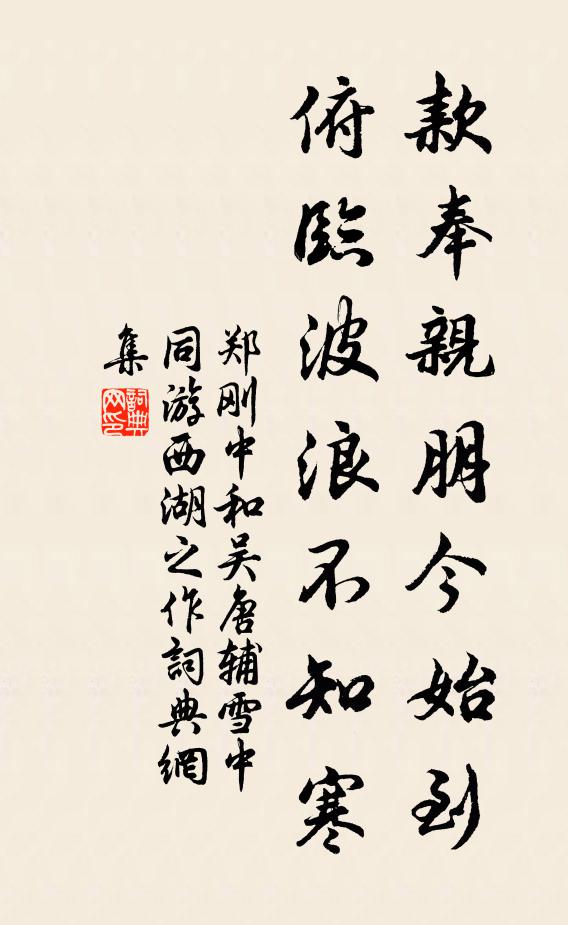 款奉親朋今始到
俯臨波浪不知寒
郑刚中和吴唐辅雪中
同游西湖之作詞典網
集
詞典
网印